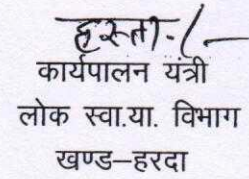 हस्ता-/-
कार्यपालन यंत्री
लोक स्वा.या. विभाग
खण्ड–हरदा